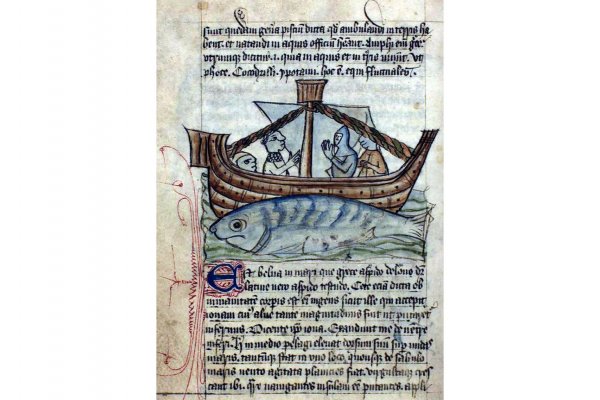 sunt quedam gen'a pisciū dicta qđ ambulandi in terris ha
bent. et natandi in aquis officiū habent. Amphi em̄ gre
utrumque dicitur .i. quia in aquis et in tris uiuit. ut
phoce. Cocodrilli. ypotami. hoc ē. equi fluctuales.
Est belua in mari que grece aspido delone dr̄
latine uero aspido testudo. Cete etiā dicta ob
inmanitatem corporis est em̄ ingens sicut ille qui excepit
ionam cui' alue tante magnitudinis fuit ut putaret
infernus. Dicente ip̄o iona. Exaudiuit me de uentre
inferi. in medio pelagi eleuat dorsum suum sup undas
maris. tantumque stat in uno loco. quousque de sabulo
maris uento agitata planicies fiat. uirgultaque cres
cant ibi. Qre nauigantes insulam ēē putantes. appli